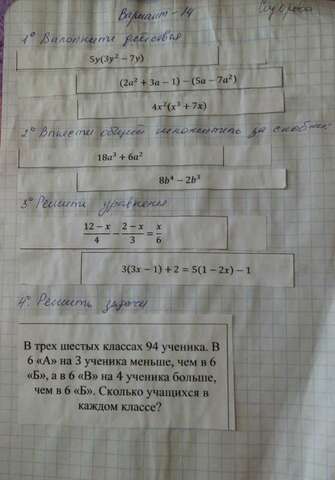 Вариант - 14
1° Выполните действия
5y(3y² − 7y)
(2a² + 3a − 1) − (5a − 7a²)
4x²(x³ + 7x)
2° Вынести общий множитель за скобки
18a³ + 6a²
8b⁴ − 2b³
3° Решить уравнения
(12 − x)/4 − (2 − x)/3 = x/6
3(3x − 1) + 2 = 5(1 − 2x) − 1
4° Решить задачу
В трех шестых классах 94 ученика. В
6 «А» на 3 ученика меньше, чем в 6
«Б», а в 6 «В» на 4 ученика больше,
чем в 6 «Б». Сколько учащихся в
каждом классе?